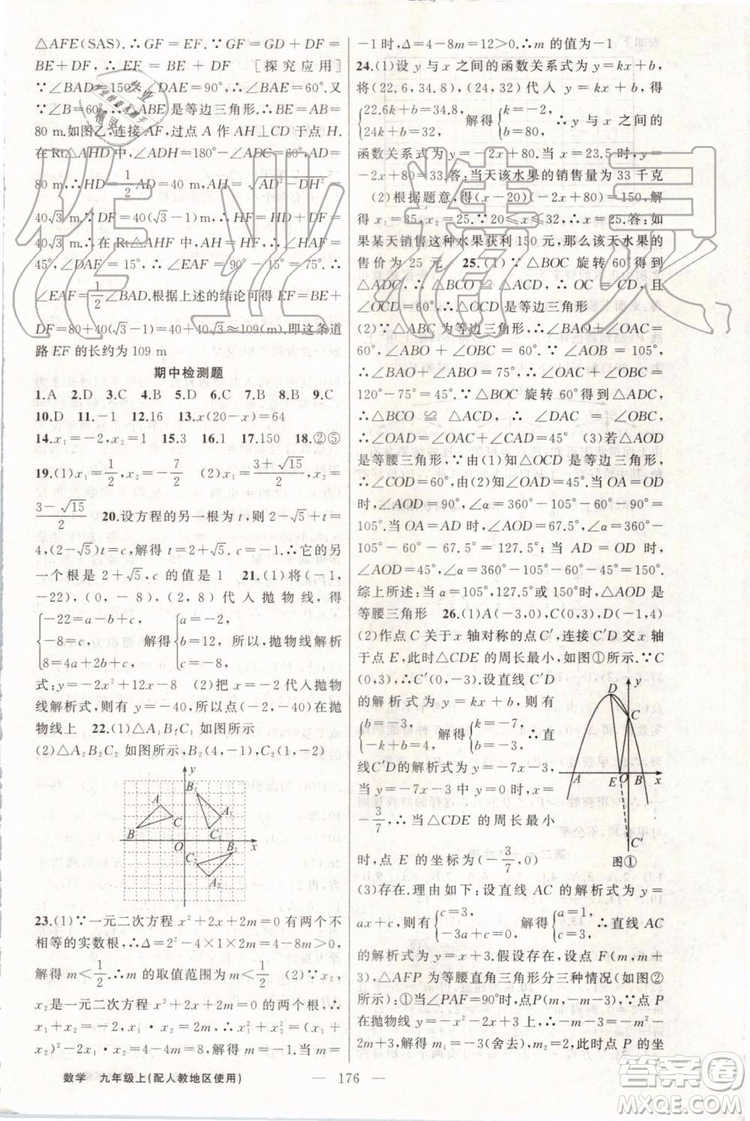 △AFE(SAS).∴GF=EF.∵GF=GD+DF=
BE+DF.∴EF=BE+DF [探究应用]
∵∠BAD=150°,∠DAE=90°,∴∠BAE=60°.
∵∠B=60°,∴△ABE是等边三角形,∴AB=BE=
80 m.如图乙,连接AF,过点A作AH⊥CD于点H,在
Rt△AHD中,∠ADH=180°-∠ADC=60°,AD=
80 m,∴HD=½AD=40 m,AH=√(AD²-HD²)=
40√3 m.∵DF=40(√3-1)m,∴HF=HD+DF=
40√3 m.∴在Rt△AHF中,∠HAF=45°,∴∠DAF=15°,
∴∠EAF=90°-15°=75°=
½∠BAD.∴根据上述的结论可得到:EF=
BE+DF=80+40(√3-1)≈109(m).即这条道
路EF的长约为109 m
期中检测题
1.A 2.D 3.C 4.B 5.D 6.B 7.D 8.B 9.C
10.D 11.-2 12.16 13.x(20-x)=64
14.x₁=-2,x₂=1 15.3 16.1 17.150 18.②⑤
19.(1)x₁=-½,x₂=-7/2 (2)x₁=(3+√15)/2,x₂=
(3-√15)/2 20.设方程的另一根为t,则2-√5+t=
4,(2-√5)t=c,解得t=2+√5,c=-1.∴它的另一
个根是2+√5,c的值是-1 21.(1)将(-1,
-22),(0,-8),(2,8)代入抛物线得
{-22=a-b+c, -8=c, 8=4a+2b+c, 解得{a=-2, b=12, c=-8, 所以,抛物线解析
式:y=-2x²+12x-8 (2)把x=-2代入抛物
线解析式,则有y=-40,所以点P(-2,-40)在此抛
物线上 22.(1)△A₁B₁C如图所示
(2)△A₂B₂C₂如图所示,B₂(4,-1),C₂(1,-3)
y
B₁
A
A₁
B
C
O
B₂
x
C₂
A₂
23.(1)∵一元二次方程x²+2x+2m=0有两个不
相等的实数根,∴Δ=2²-4×1×2m=4-8m>0,
解得m<½.∴m的取值范围为m<½ (2)∵x₁,
x₂是一元二次方程x²+2x+2m=0的两个根,∴
x₁+x₂=-2,x₁·x₂=2m,∴x₁²+x₂²=(x₁+
x₂)²-2x₁·x₂=4-4m=8,解得m=-1.当m=
数学 九年级上(配人教地区使用)
-1时,Δ=4-8m=12>0.∴m的值为-1
24.(1)设y与x之间的函数关系式为y=kx+b,
将(22.6,34.8),(24,32)代入y=kx+b得
{22.6k+b=34.8, 24k+b=32, 解得{k=-2, b=80, ∴y与x之间的
函数关系式为y=-2x+80.当x=23.5时,y=
-2x+80=33.答:当天该水果的销售量为33千克
(2)根据题意,得(x-20)(-2x+80)=150,解
得x₁=35,x₂=25.∵20≤x≤32,∴x=25.答:如
果某天销售这种水果获利150元,那么该天水果的
售价为25元 25.(1)∵△BOC旋转60°得到
△ACD,∴△BOC≌△ACD,∴OC=DC,
且∠OCD=60°.∴△OCD是等边三角形
(2)∵△ABC为等边三角形,∴∠BAO+∠OAC=
60°,∠ABO+∠OBC=60°.∵∠BAO+∠OAC=
45°,∴∠ABO+∠OBC=60°.∵△BOC旋转60°得到△ACD,
∴△BCO≌△ACD,∴∠OBC=∠DAC,
∴∠OAD=∠OAC+∠CAD=∠OAC+
∠OBC=120°-75°=45° (3)若△AOD
是等腰三角形,∵由(1)知△OCD是等边三角形,
∴∠COD=60°.∵由(2)知∠OAD=45°,①当OA=OD时,
∠AOD=90°,∠α=360°-105°-60°-90°=
105°.②当OA=AD时,∠AOD=67.5°,∠α=360°-
105°-60°-67.5°=127.5°.③当AD=OD时,
∠AOD=45°,∠α=360°-105°-60°-45°=150°.
综上所述:当α=105°,127.5°或150°时,△AOD是
等腰三角形 26.(1)A(-3,0),C(0,3),D(-1,4)
(2)作点C关于x轴对称的点C′,连接C′D交x轴
于点E,此时△CDE的周长最小,
如图①.∵C(0,3),∴C′(0,-3).设直线C′D
的解析式为y=kx+b,则有
{b=-3, -k+b=4, 解得{k=-7, b=-3, ∴直
线C′D的解析式为y=-7x-3,
当y=-7x-3中y=0时,x=
-3/7,∴当△CDE的周长最小
时,点E的坐标为(-3/7,0)
D
y
C
A
E
O
B
x
C′
图①
(3)存在,理由如下:设直线AC的解析式为y=
ax+c,则有{c=3, -3a+c=0, 解得{a=1, c=3, ∴直线AC
的解析式为y=x+3.假设存在,设点F(m,m+
3),△AFP为等腰直角三角形分三种情况(如图②
所示):①当∠PAF=90°时,点P(m,-m-3),∵点
P在抛物线y=-x²-2x+3上,∴-m-3=
-m²-2m+3,解得m₁=-3(舍去),m₂=2,此时
176